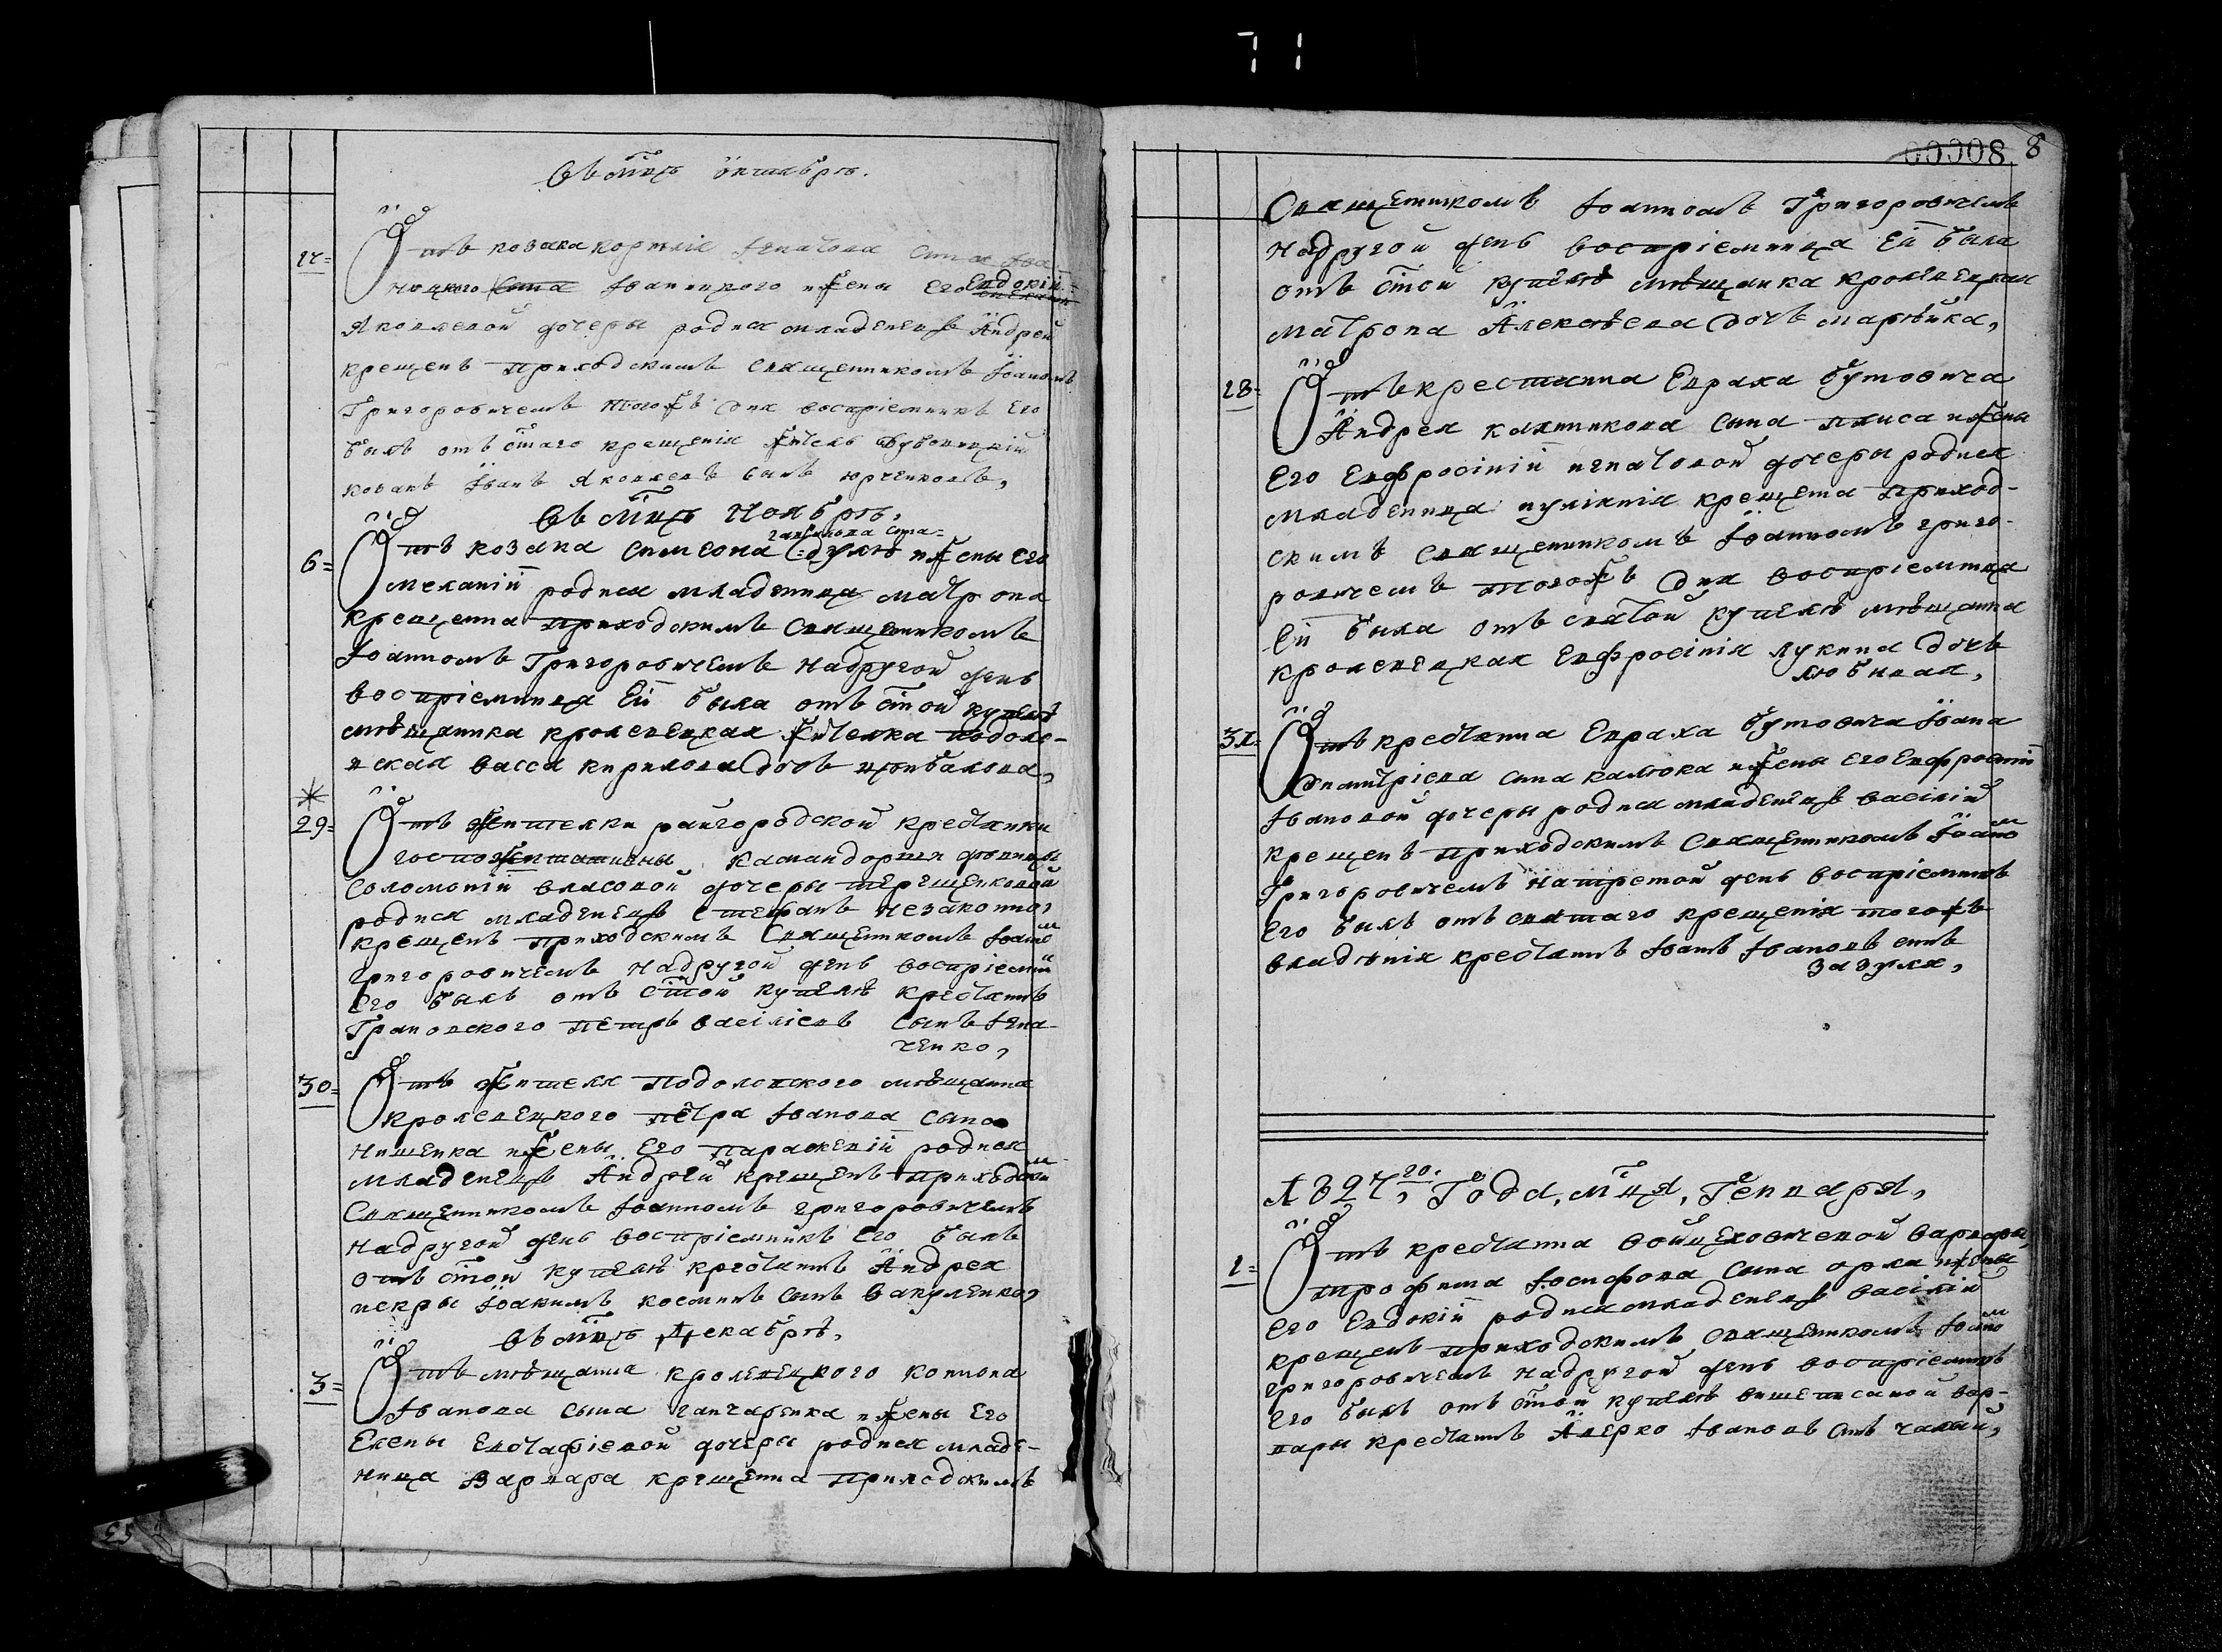 Въ мц҃ѣ октябрѣ.
Отъ козака корнѣя
Ивницкого и жены Его Евдокіи
Яковлевой дочеры родися младенецъ Андрей
крещенъ приходскимъ священникомъ Іоанномъ
Григоровичемъ тогожъ дня воспріемникъ Его
былъ отъ с҃таго крещенія житель
козакъ Іванъ Яковлевъ сынъ юрченковъ,
Въ мц҃ѣ Ноябрѣ,
6= Отъ козака симеона и жены его
меланіи родися младеница матрона
крещенна приходскимъ священникомъ
Іоанномъ Григоровичемъ надругой день
воспріемница Еи была отъ с҃той купелѣ
мѣщанка кролевецкая жителка подоло-
вская васса кирилова дочь цимбалова,
29= Отъ жителки райгородской крестянки
командорши
Соломоніи власовой дочеры терещенковой
родися младенецъ стефанъ незаконно,
крещенъ приходскимъ Священникомъ Іоаном
григоровичемъ надругой день воспріемни
Его былъ отъ с҃той купелѣ крестянинъ
Грановского петръ васіліевъ сынъ Ігна-
ченко,
30= Отъ жителя подоловского мѣщанина
кролевецкого петра Іванова сына
нищенка и жены Его параскевіи родися
младенецъ Андрей крещенъ приходским
Священникомъ Іоанномъ григоровичемъ
надругой день воспріемникъ Его былъ
отъ с҃той купелѣ крестянинъ Андрея
искры Іоакимъ косминъ сынъ вакуленко,
въ мц҃ѣ Декабрѣ,
3= Отъ мѣщанина кролевецкого конона
Іванова сына ганчаренка и жены Его
Елены Евстафіевой дочеры родися младе-
ница Варвара крещенна приходскимъ
00008 8
Священникомъ Іоанномъ Григоровичемъ
надругой день воспріемница Еи была
отъ с҃той купелѣ мѣщанка кролевецкая
матрона Алексѣева дочь марѣйка,
28= Отъ крестянина Евраха бутовича
Андрея калиникова сына плиса и жены
Его Евфросініи игнатовой дочеры родися
младеница иуліянія крещена приход-
скимъ Священникомъ Іоанномъ григо-
ровичемъ тогожъ дня воспріемница
Еи была отъ святой купелѣ мѣщанка
кролевецкая Евфросінія лукина дочь
любивая,
31= Отъ крестянина Евраха бутовича Івана
Димитріева сына калюка и жены Его Евфросініи
Івановой дочеры родися младенецъ васілій
крещенъ приходскимъ Священникомъ Іоаном
Григоровичемъ натретой день воспріемникъ
Его былъ отъ святаго крещенія тогожъ
владѣнія крестянинъ Іванъ Івановъ синъ
зазуля,
1827го, Года, мц҃а, Генваря,
1= Отъ крестянина войцеховичевой варвары,
трофима Іосифова сына орла и жены
Его Евдокіи родися младенецъ васілій
крещенъ приходскимъ Священникомъ Іоаном
григоровичемъ надругой день воспріемникъ
Его былъ отъ с҃той купелѣ вишеписаной вар-
вары крестянинъ Аверко Івановъ синъ чалый,